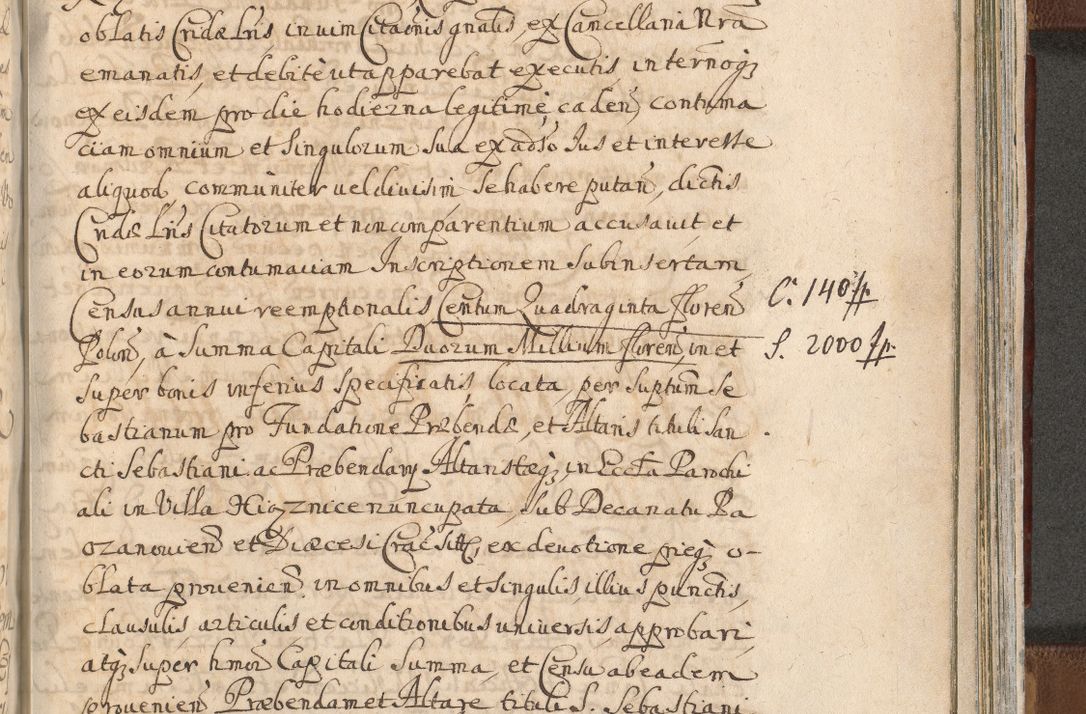 oblatis Cridae Lris, in vim Citaōnis gnālis, ex Cancellaria Nrā
emanatis, et debitè ut apparebat executis, in termōq;
ex eisdem pro die hodierna legitimè caden̄, contuma
ciam omnium et Singulorum sua ex adso Ius et interesse
aliquod, communiter vel divisim, se habere putan̄, dictis
Cridae Lris Citatorum et non comparentium accusavit et
in eorum contumaciam Inscriptionem subinsertam,
Census annui reemptionalis Centum Quadraginta floren̄
C. 140 fl.
Polon̄, à Summa Capitali Duorum Millium floren̄, in et
S. 2000 fl.
super bonis inferius specificatis, locata, per suptum Se
bastianum pro Fundatione Praebendae, et Altaris tituli San
cti Sebastiani ac Praebendary Altaristaeq; in Eccła Parochi
ali in Villa Xiąznice nuncupata, sub Decanatu Pa
ozanovien̄ et Diaecesi Crac sitt, ex devotione pieq; o-
blata provenien̄, in omnibus et singulis, illius punctis,
clausulis, articulis et conditionibus universis, approbari
atq; super hmōi Capitali Summa, et Censu ab eadem
provenien̄ Praebendam et Altare tituli S. Sebastiani